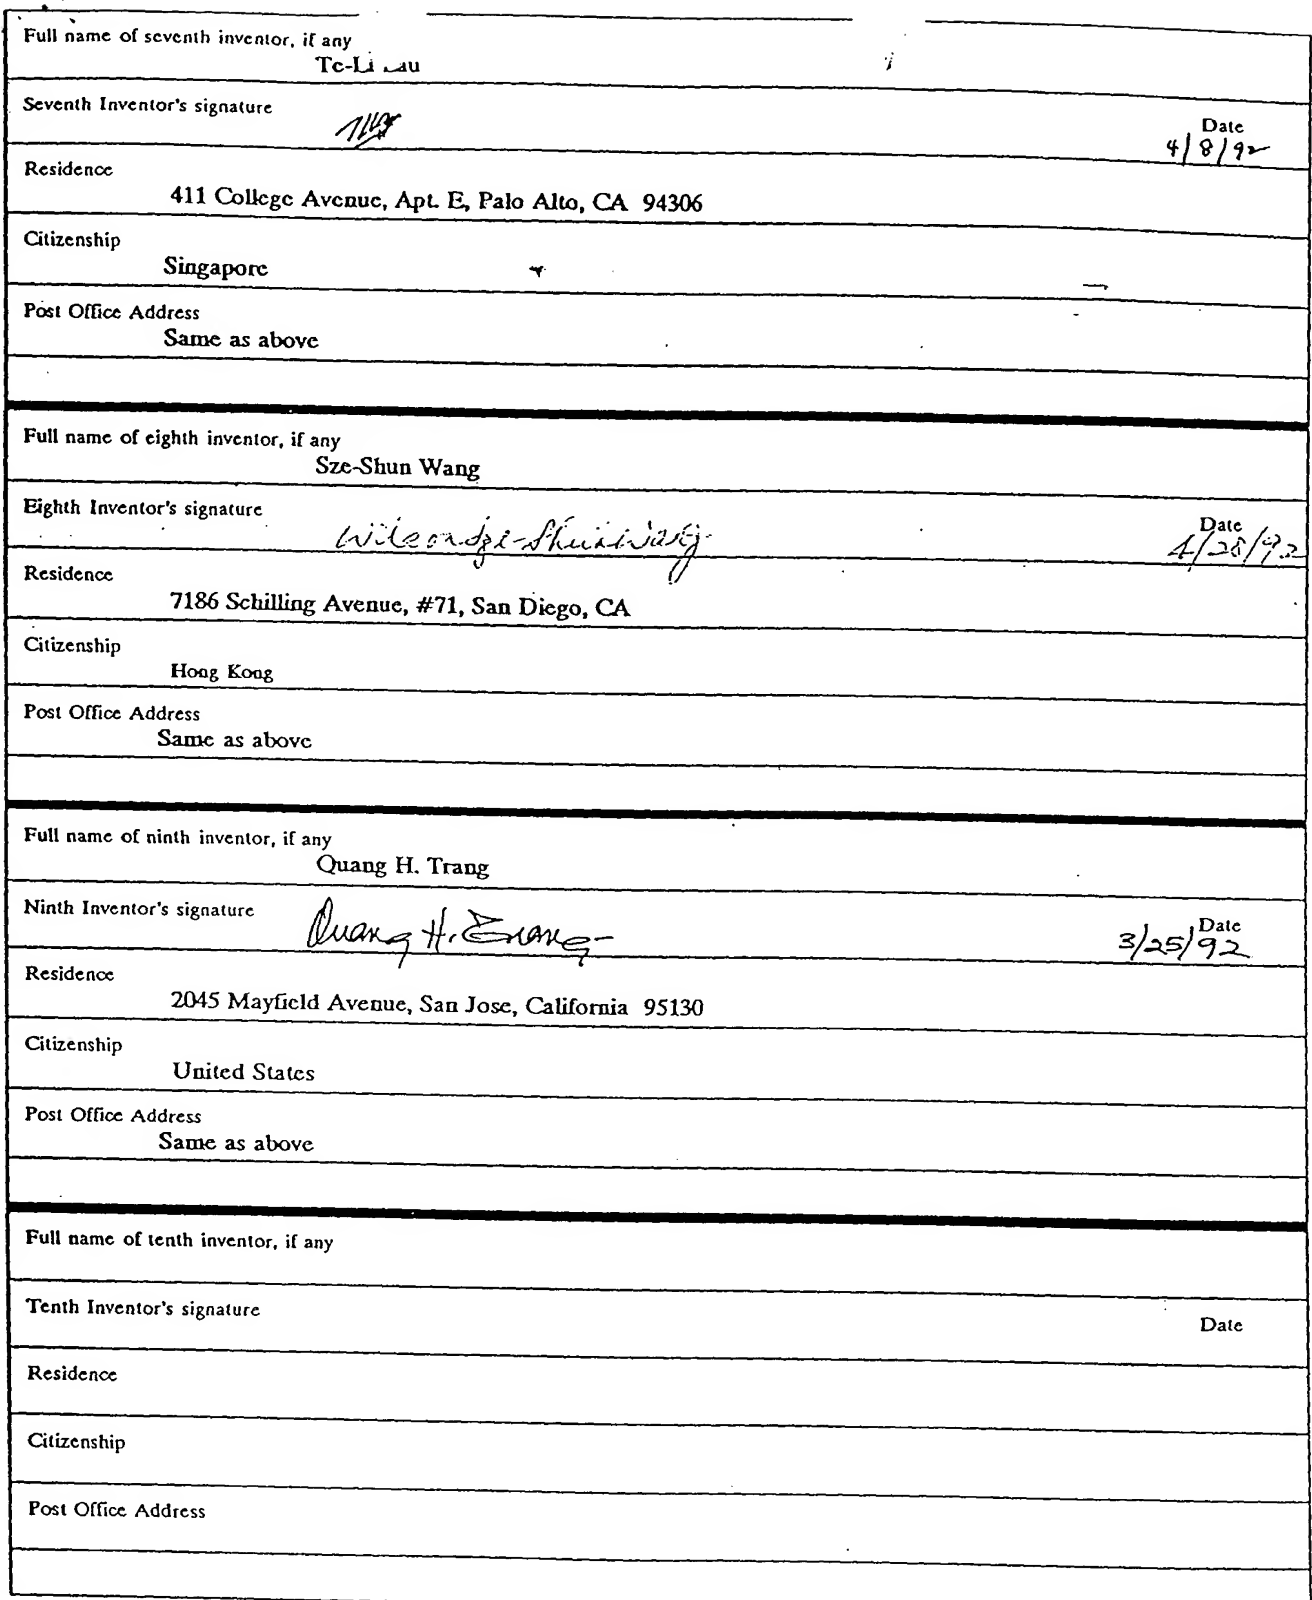 Full name of seventh inventor, if any
Te-Li
Seventh Inventor's signature
Date
4/8/92
Residence
411 College Avenue, Apt. E, Palo Alto, CA 94306
Citizenship
Singapore
Post Office Address
Same as above
Full name of eighth inventor, if any
Sze-Shun Wang
Eighth Inventor's signature
Wilson Sze-Shun Wang
Date
4/28/92
Residence
7186 Schilling Avenue, #71, San Diego, CA
Citizenship
Hong Kong
Post Office Address
Same as above
Full name of ninth inventor, if any
Quang H. Trang
Ninth Inventor's signature
Quang H. Trang
Date
3/25/92
Residence
2045 Mayfield Avenue, San Jose, California 95130
Citizenship
United States
Post Office Address
Same as above
Full name of tenth inventor, if any
Tenth Inventor's signature
Date
Residence
Citizenship
Post Office Address